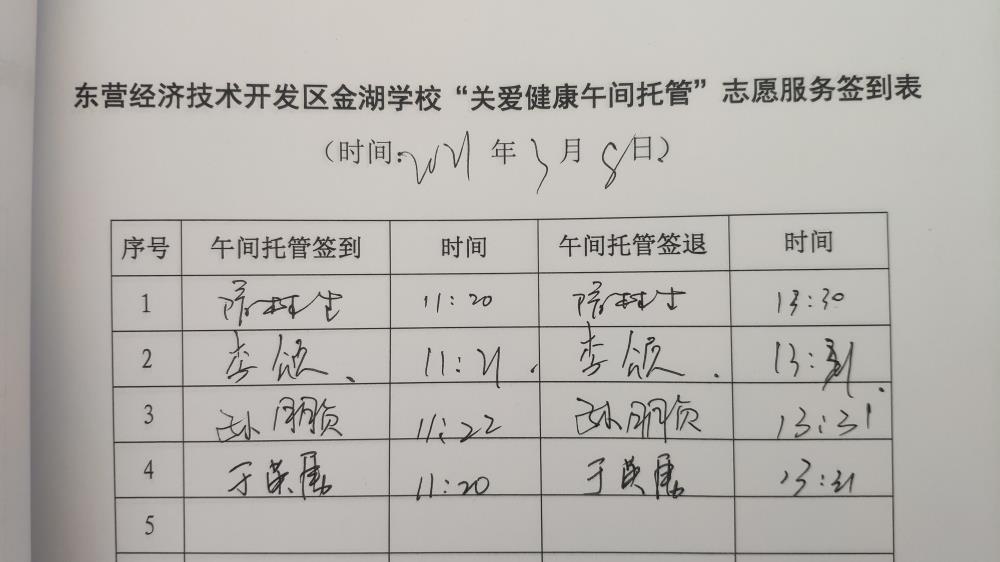 东营经济技术开发区金湖学校“关爱健康午间托管”志愿服务签到表
（时间：2021 年 3 月 8 日）
序号 午间托管签到 时间 午间托管签退 时间
1 11:20 13:30
2 李颂 11:21 李颂 13:31
3 孙朋贞 11:22 孙朋贞 13:31
4 于英展 11:20 于英展 13:31
5